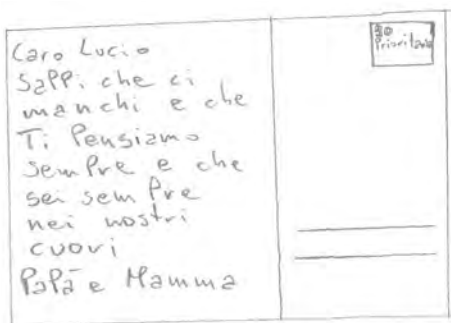 Caro Lucio
Sappi che ci
manchi e che
Ti Pensiamo
sempre e che
sei sempre
nei nostri
cuori
Papà e Mamma
Prioritaria